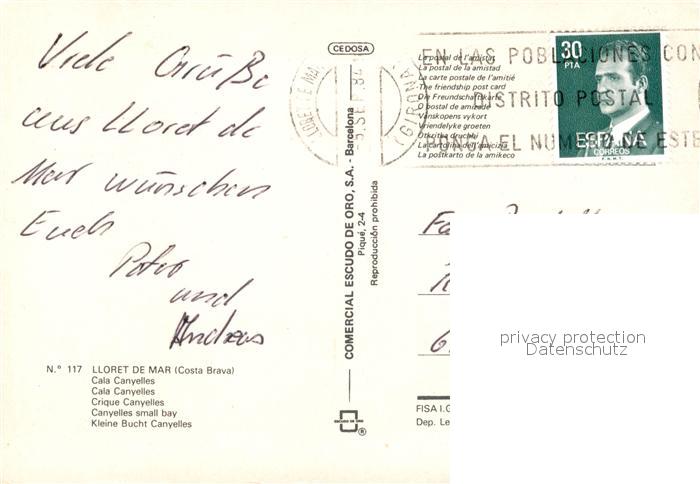 Viele Grüße
aus Lloret de
Mar wünschen
Euch
Petra
und
Andreas
N.° 117 LLORET DE MAR (Costa Brava)
Cala Canyelles
Cala Canyelles
Crique Canyelles
Canyelles small bay
Kleine Bucht Canyelles
CEDOSA
COMERCIAL ESCUDO DE ORO, S.A. - Barcelona
Piqué, 2-4
Reproducción prohibida
ESCUDO DE ORO
®
LLORET DE MAR
SET. 84
(GIRONA)
EN LAS POBLACIONES CON
DISTRITO POSTAL
PONGA EL NUMERO DE ESTE
La postal de l'amistat
La postal de la amistad
La carte postale de l'amitié
The friendship post card
Die Freundschaftskarte
O postal de amizade
Vänskapens vykort
Vriendelyke groeten
La cartolina dell'amicizia
La postkarto de la amikeco
30
PTA
ESPAÑA
CORREOS
F.N.M.T.
Fa
FISA I.G
Dep. Le
privacy protection
Datenschutz